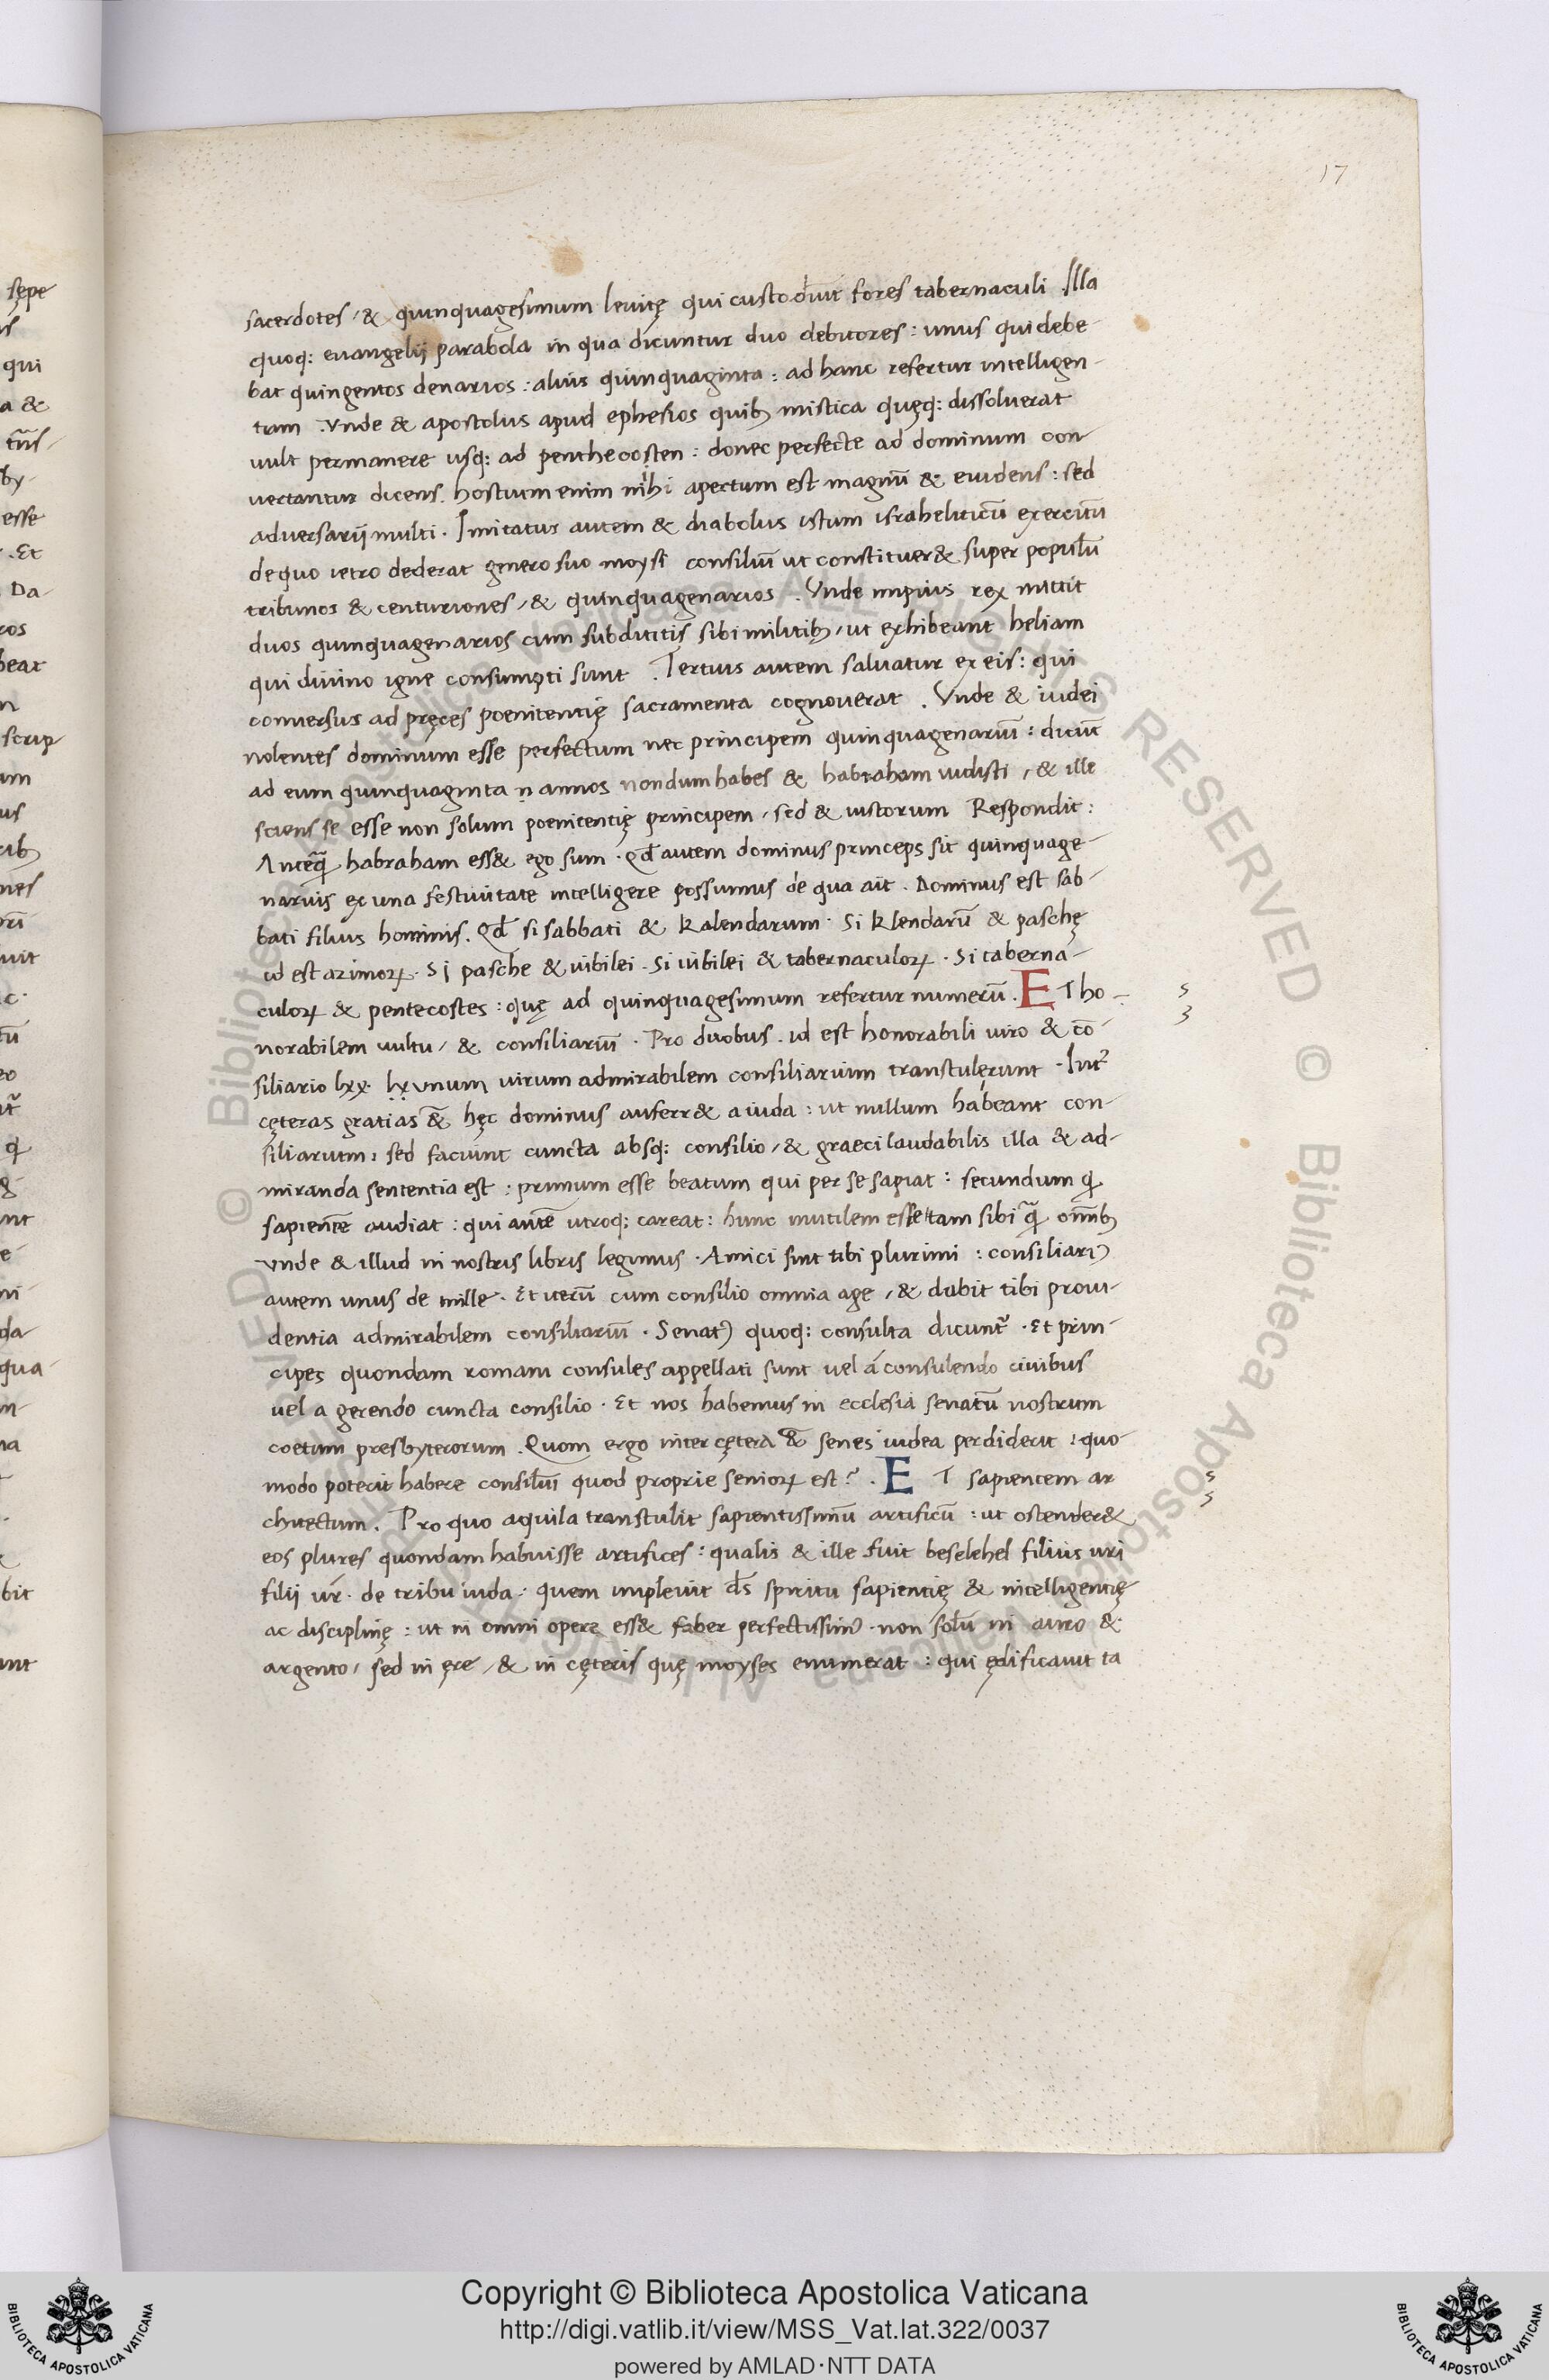 17
sacerdotes / & quinquagesimum leuitę qui custodiūt fores tabernaculi . Illa
quoq; euangelij parabola in qua dicuntur duo debitores : unus qui debe-
bat quingentos denarios : alius quinquaginta : ad hanc refertur intelligen-
tiam . Vnde & apostolus apud ephesios quib; mistica quęq; dissoluerat
uult permanere usq; ad penthecosten : donec perfecte ad dominum con-
uertantur dicens . hostium enim mihi apertum est magnū & euidens : sed
aduersarij multi . Imitatur autem & diabolus istum israheliticū exercitū
de quo ietro dederat genero suo moysi consiliū ut constituer& super populū
tribunos & centuriones / & quinquagenarios . Vnde impius rex mittit
duos quinquagenarios cum subditis sibi militib; / ut exhibeant heliam
qui diuino igne consumpti sunt . Tertius autem saluatur ex eis : qui
conuersus ad pręces poenitentię sacramenta cognouerat . Vnde & iudei
nolentes dominum esse perfectum nec principem quinquagenariū : dicūt
ad eum quinquaginta n annos nondum habes & habraham uidisti / & ille
sciens se esse non solum poenitentię principem / sed & iustorum Respondit :
Anteq̄ habraham ess& ego sum . Qd̄ autem dominus princeps sit quinquage-
narius ex una festiuitate intelligere possumus de qua ait . Dominus est sab-
bati filius hominis . Qd̄ si sabbati & kalendarum . Si klendarū & paschę
id est azimoꝝ . Si pasche & iubilei . Si iubilei & tabernaculoꝝ . Si taberna-
culoꝝ & pentecostes : quę ad quinquagesimum refertur numerū . ET ho-
norabilem uultu / & consiliariū . Pro duobus . id est honorabili uiro & cō-
siliario lxx . lx unum uirum admirabilem consiliarium transtulęrunt . Int̃
cęteras gratias & hęc dominus auferr& a iuda : ut nullum habeant con-
siliarium : sed faciunt cuncta absq; consilio / & graeci laudabilis illa & ad-
miranda sententia est : primum esse beatum qui per se sapiat : secundum q
sapientē audiat : qui autē utroq; careat : hunc inutilem esse tam sibi q̄ omnib;
Vnde & illud in nostris libris legimus . Amici sint tibi plurimi : consiliariꝰ
autem unus de mille . Et iterū cum consilio omnia age / & dabit tibi proui-
dentia admirabilem consiliariū . Senatꝰ quoq; consulta dicunt̃ . Et prin-
cipes quondam romani consules appellati sunt uel á consulendo ciuibus
uel a gerendo cuncta consilio . Et nos habemus in ecclesia senatū nostrum
coetum presbyterorum . Quom ergo inter cętera & senes iudea perdiderit : quo-
modo poterit habere consiliū quod proprie senioꝝ est ? . ET sapientem ar
chitectum . Pro quo aquila transtulit sapientissimū artificū : ut ostender&
eos plures quondam habuisse artifices : qualis & ille fuit beselehel filius uri
filij ur . de tribu iuda . quem impleuit ds̄ spiritu sapientię & intelligentię
ac disciplinę : ut in omni opere ess& faber perfectissimꝰ . non solū in auro &
argento / sed in ęre / & in cęteris quę moyses enumerat : qui ędificauit ta
Copyright © Biblioteca Apostolica Vaticana
http://digi.vatlib.it/view/MSS_Vat.lat.322/0037
powered by AMLAD·NTT DATA